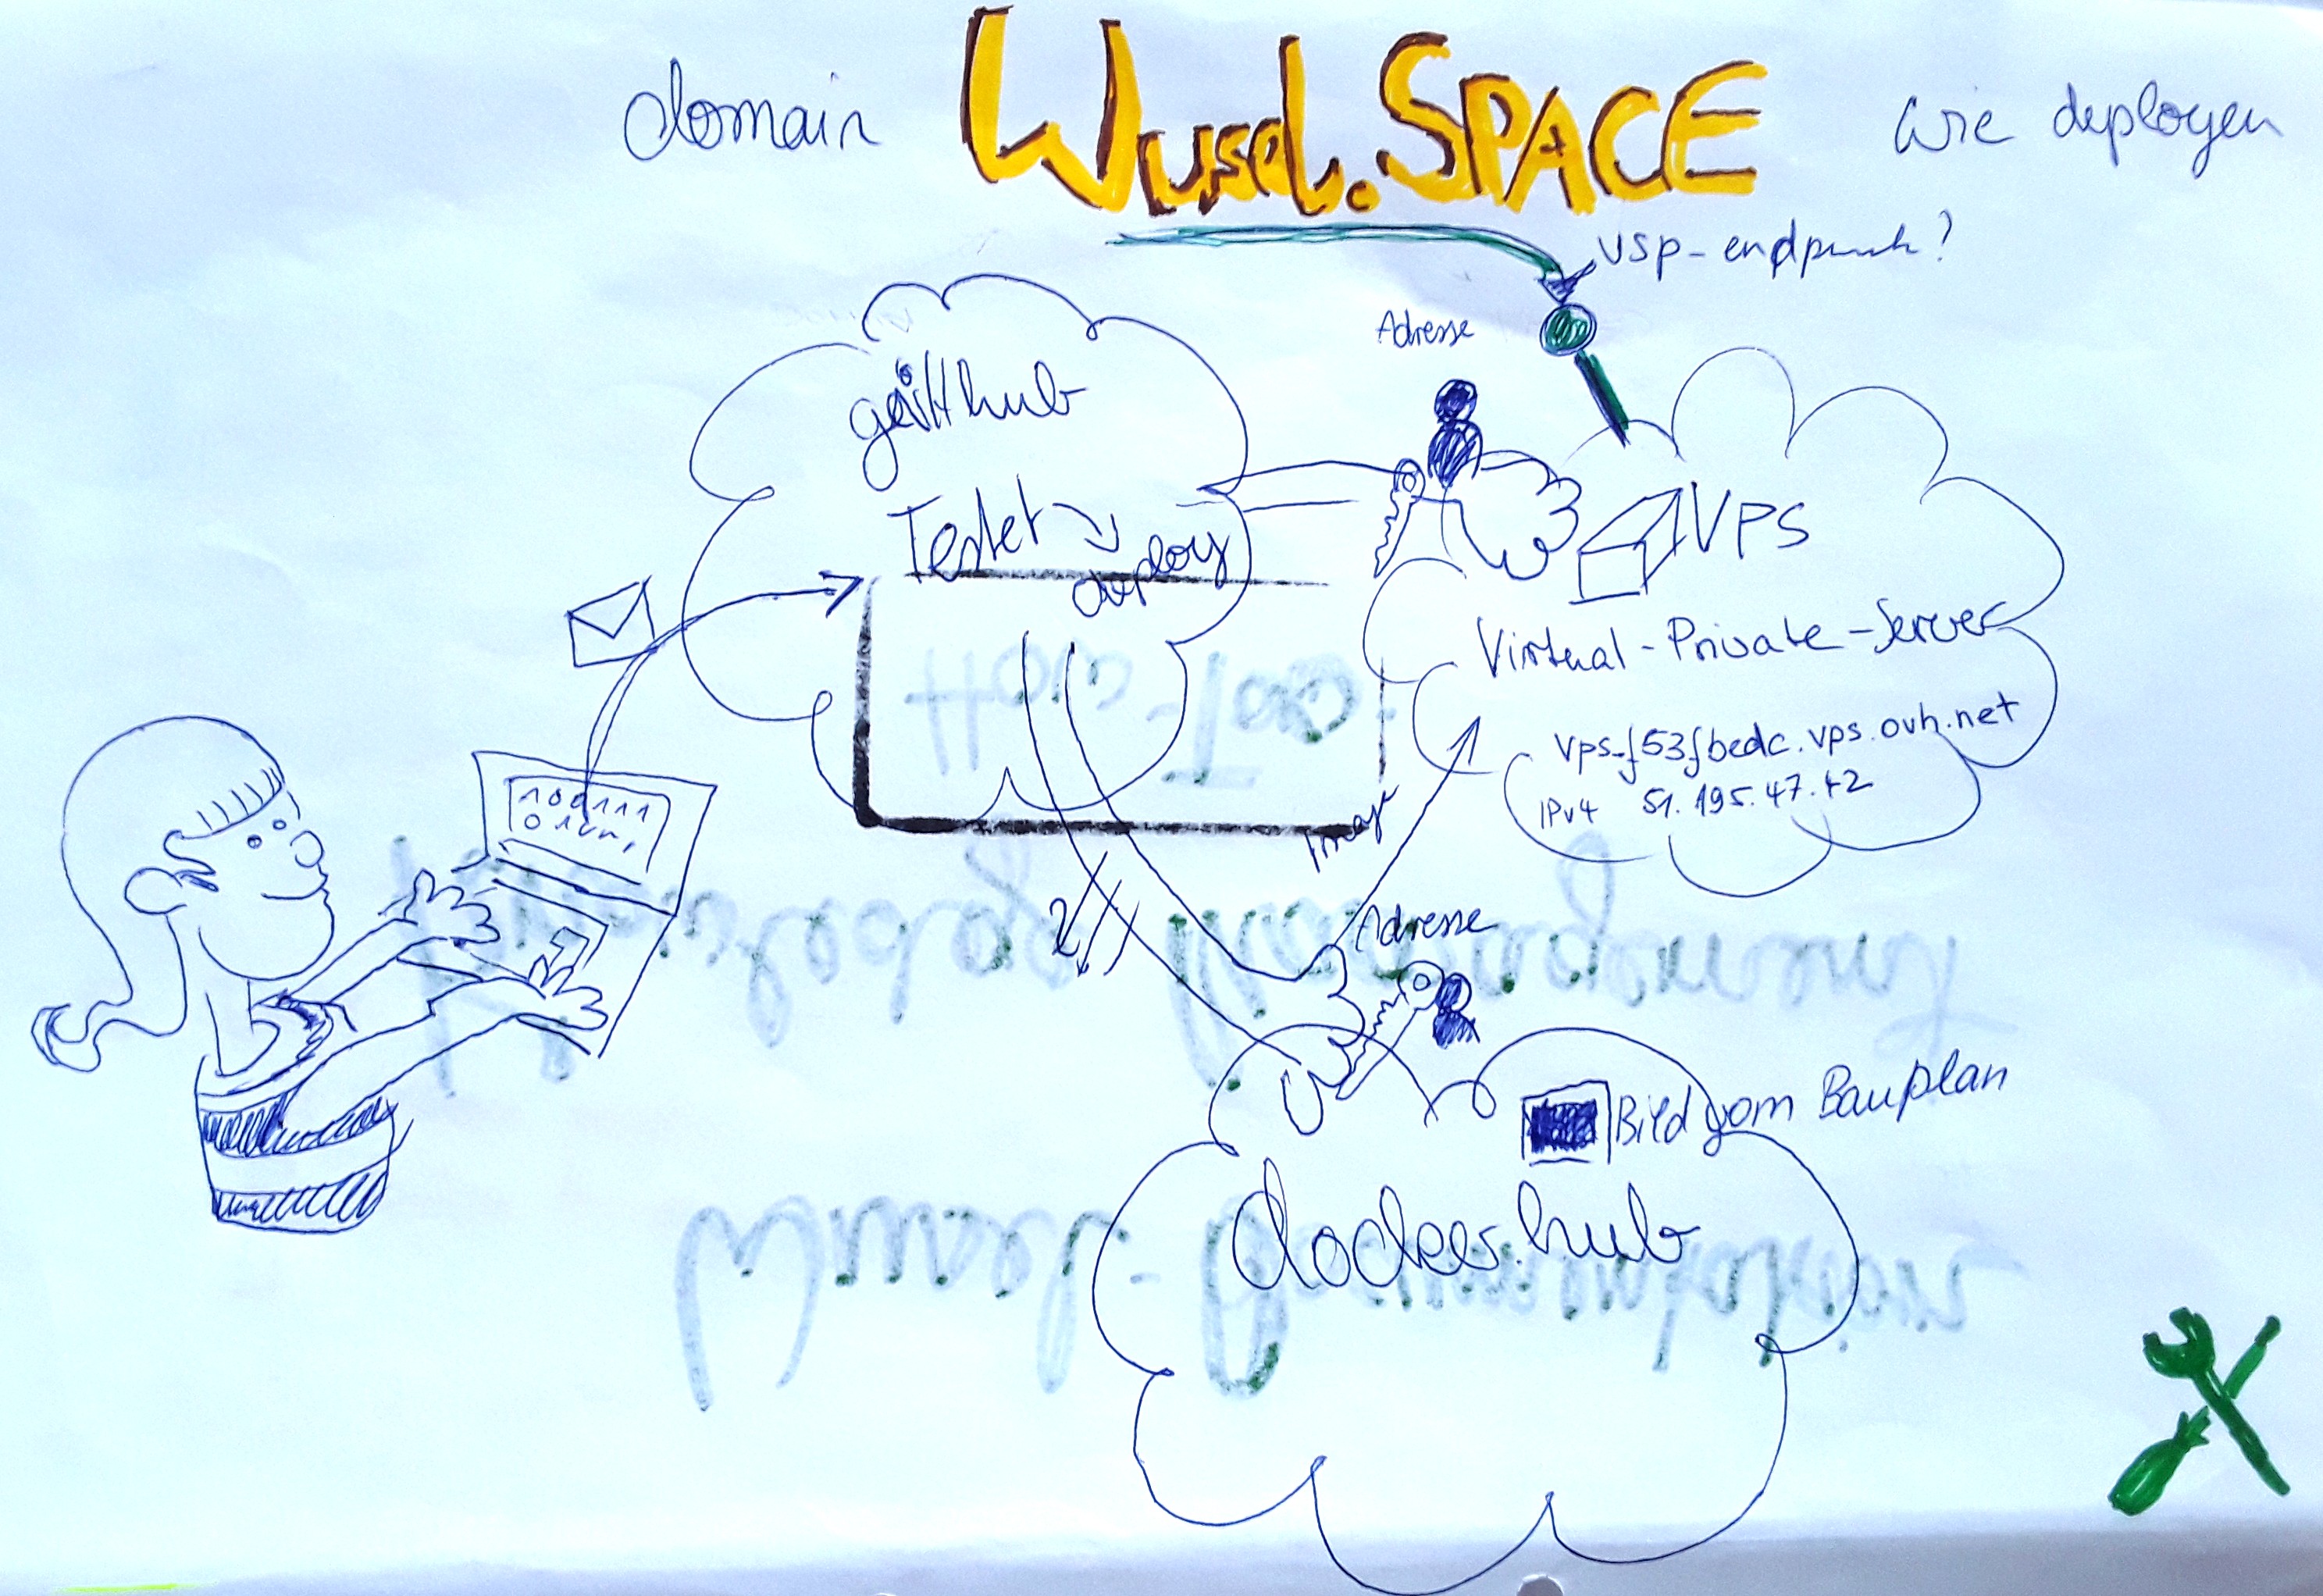 domain Wusel.SPACE wie deployen
VSP-endpunkt?
Adresse
gitHhub
Testet
deploy
VPS
Virtual-Private-Server
Vps-f53fbedc.vps.ovh.net
IPv4 51.195.47.
100111
Image
Adresse
Bild vom Bauplan
docker.hub